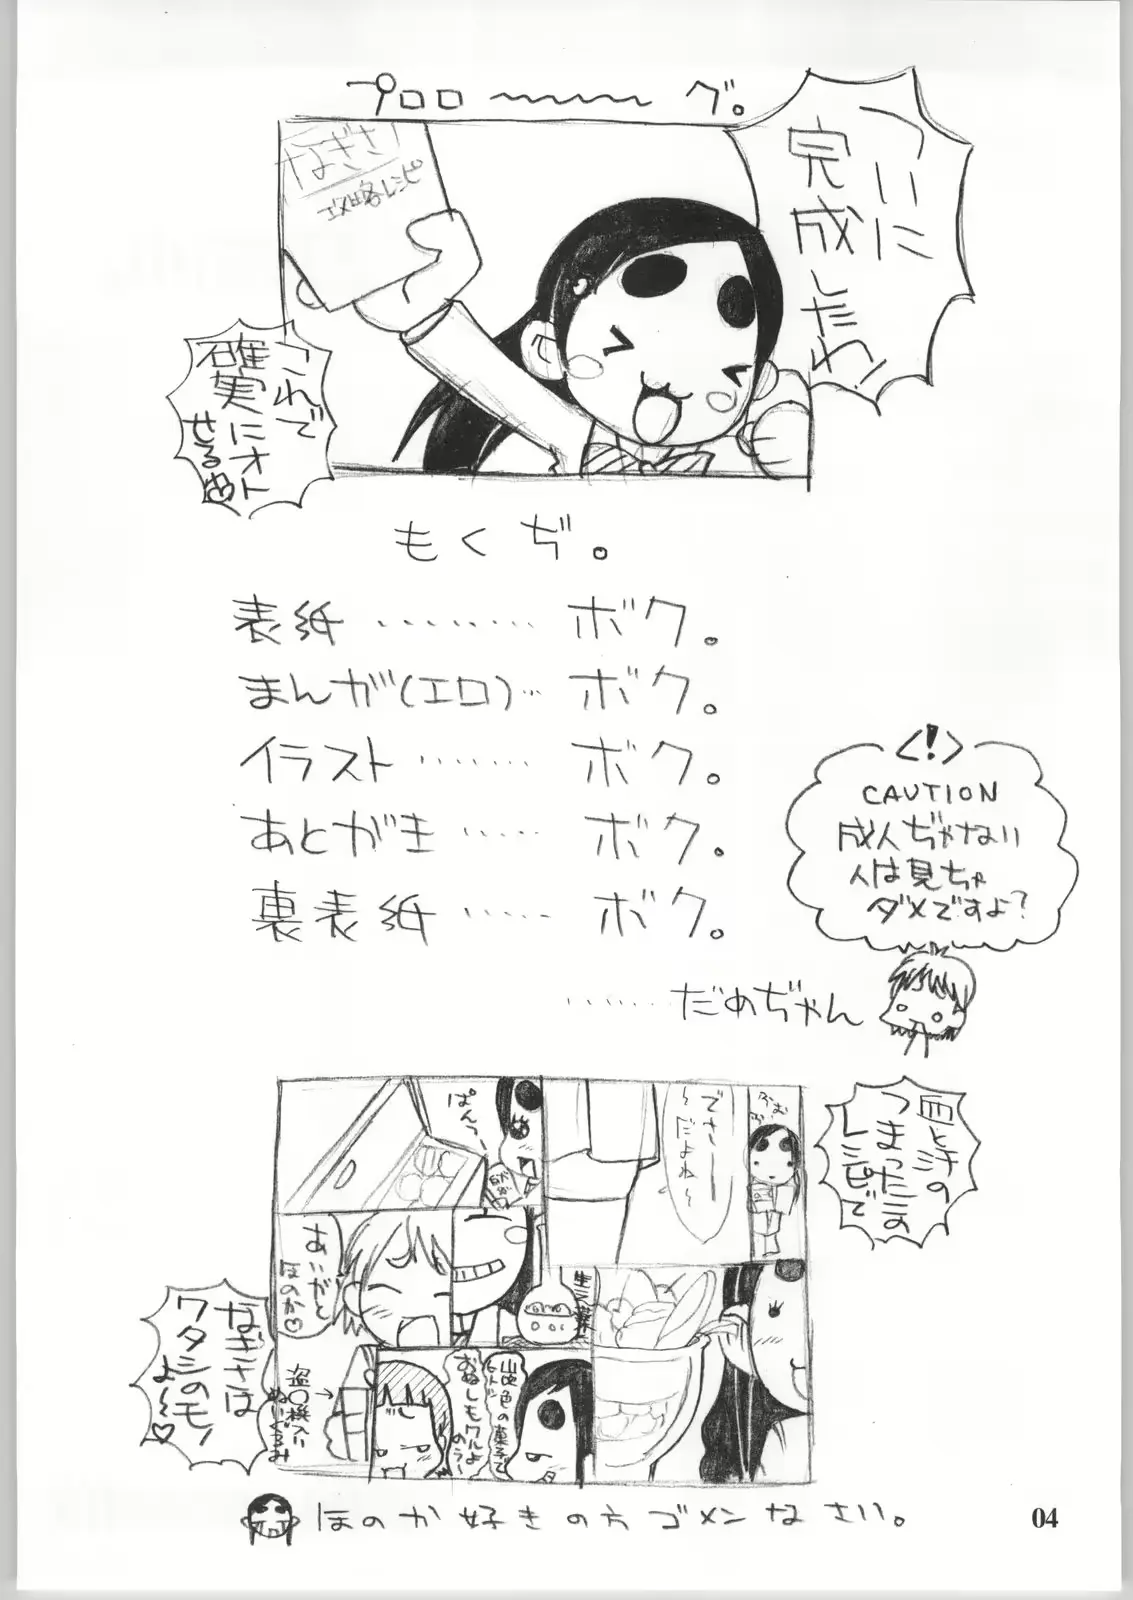 プロロ〜〜〜グ。
ついに
完成したわ!
なぎさ
攻略レシピ
これで
確実にオト
せるわ
もくぢ。
表紙………ボク。
まんが(エロ)…ボク。
イラスト………ボク。
あとがき……ボク。
裏表紙……ボク。
<!>
CAUTION
成人ぢゃない
人は見ちゃ
ダメですよ?
………だめぢゃん
血と汗の
つまったこの
レシピで
でさー
〜だよね〜
ぱんっ
ありがと
ほのか♡
生三葉
山吹色の菓子で
おぬしもワルよ
のう〜
盗〇機入り
ぬいぐるみ
なぎさは
ワタシのモノ
よ〜♡
ほのか好きの方ゴメンなさい。
04